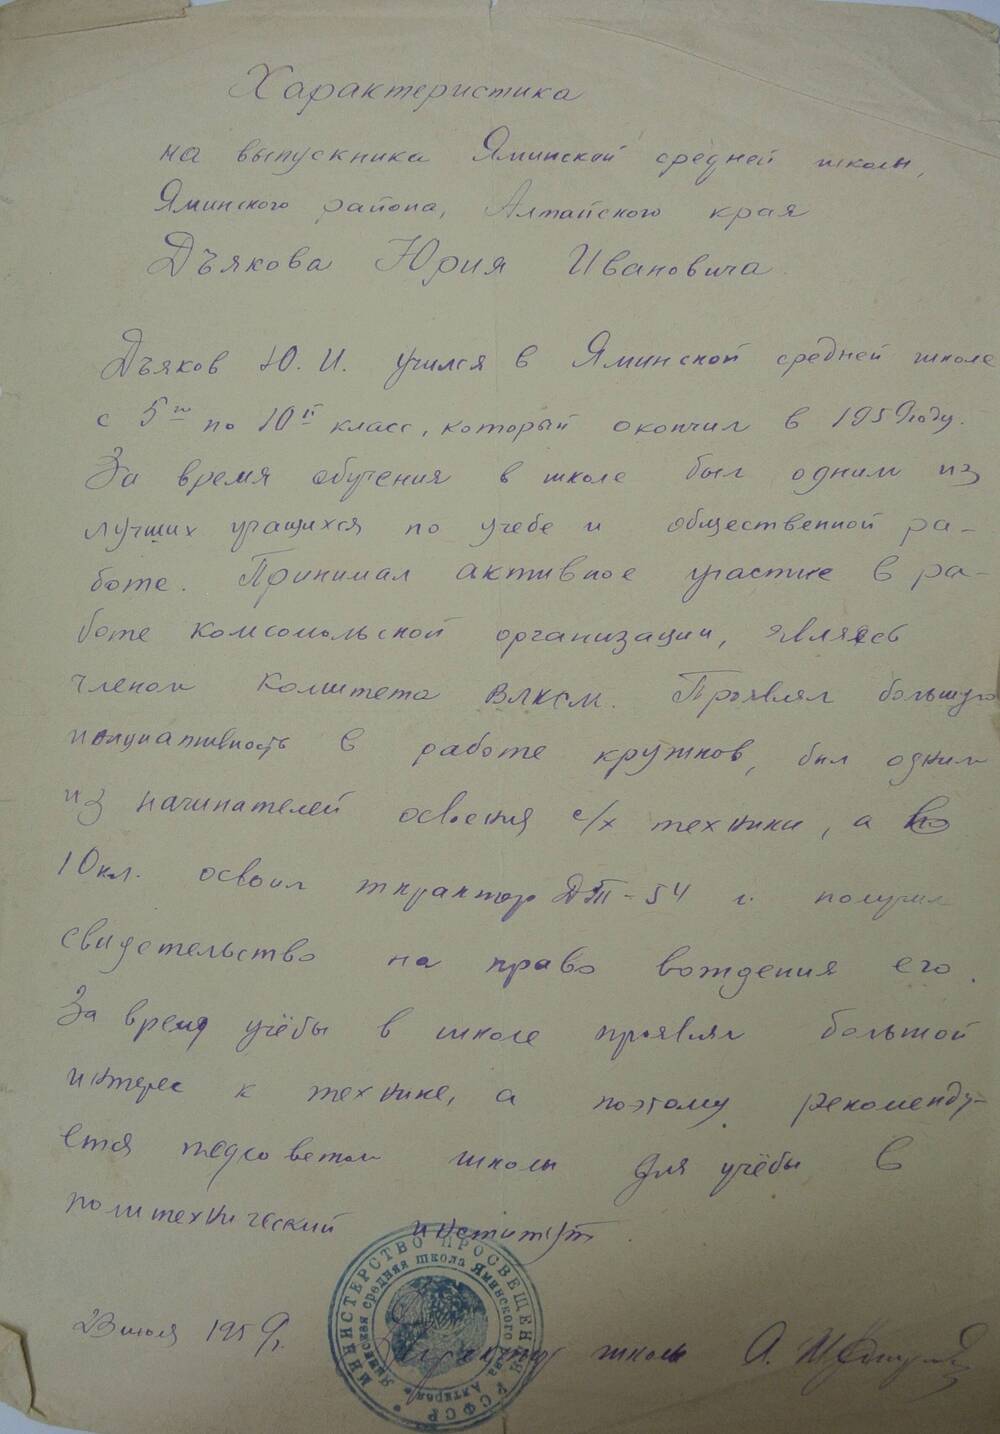 Характеристика
на выпускника Яминской средней школы,
Яминского района, Алтайского края
Дъякова Юрия Ивановича.
Дъяков Ю. И. учился в Яминской средней школе
с 5 по 10й класс, который окончил в 1959 году.
За время обучения в школе был одним из
лучших учащихся по учебе и общественной ра-
боте. Принимал активное участие в ра-
боте комсомольской организации, являясь
членом Комитета ВЛКСМ. Проявлял большую
инициативность в работе кружков, был одним
из начинателей освоения с/х техники, а в
10 кл. освоил трактор ДТ-54 и получил
свидетельство на право вождения его.
За время учёбы в школе проявлял большой
интерес к технике, а поэтому рекоменду-
ется педсоветом школы для учёбы в
политехнический институт.
МИНИСТЕРСТВО ПРОСВЕЩЕНИЯ РСФСР
Яминская средняя школа Яминского р-на Алткрая
23 июля 1959 г. Директор школы А.